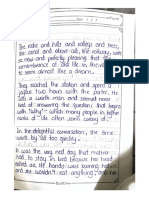 The rocks and hills and valleys and trees,
the canal and above all, the railway, were
so new and perfectly pleasing that the
remembrance of old life in the
to seem almost like a dream.
They reached the station and spent a
couple two hours with the porter. He
was a warm man and seemed never
tired of answering the question that begins
with "Why" - which many people in higher
ranks of life often seem weary of.
In the delightful conversation, the time
went by all too quickly.
It was the very next day that mother
had to stay in bed because her head
ached so. Her hands were burning hot
and she wouldn't eat anything, and her